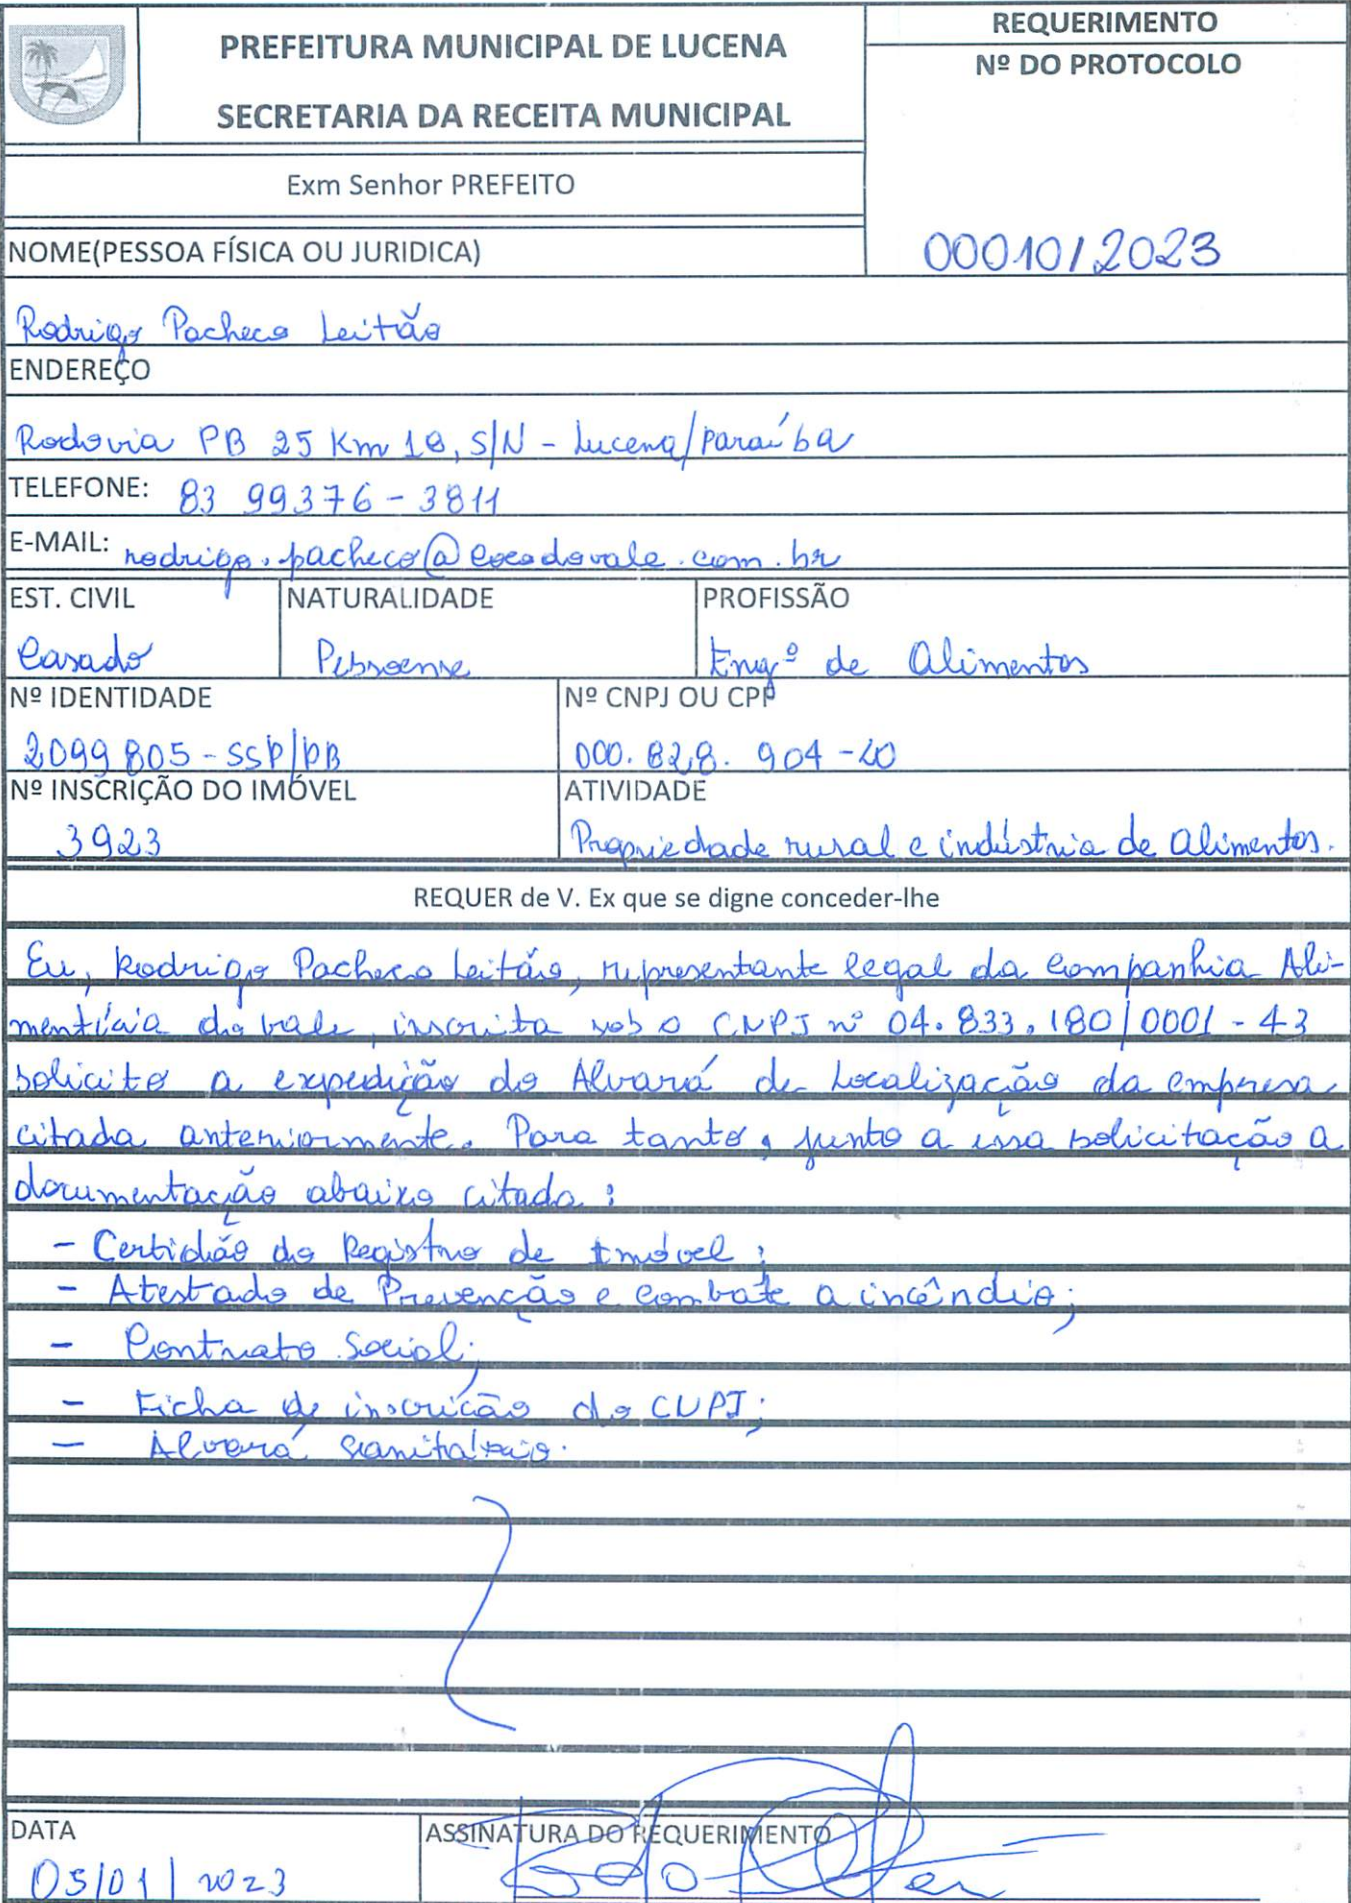 PREFEITURA MUNICIPAL DE LUCENA
SECRETARIA DA RECEITA MUNICIPAL
REQUERIMENTO
Nº DO PROTOCOLO
00010/2023
Exm Senhor PREFEITO
NOME(PESSOA FÍSICA OU JURIDICA)
Rodrigo Pacheco Leitão
ENDEREÇO
Rodovia PB 25 Km 10, S/N - Lucena/Paraíba
TELEFONE: 83 99376-3811
E-MAIL: rodrigo.pacheco@cocodovale.com.br
EST. CIVIL NATURALIDADE PROFISSÃO
Casado Pessoense Engº de Alimentos
Nº IDENTIDADE Nº CNPJ OU CPF
2099805-SSP/PB 000.828.904-20
Nº INSCRIÇÃO DO IMÓVEL ATIVIDADE
3923 Propriedade rural e indústria de Alimentos.
REQUER de V. Ex que se digne conceder-lhe
Eu, Rodrigo Pacheco Leitão, representante legal da Companhia Ali-
mentícia do Vale, inscrita sob o CNPJ nº 04.833.180/0001-43
solicito a expedição do Alvará de Localização da empresa
citada anteriormente. Para tanto, junto a essa solicitação a
documentação abaixo citada:
- Certidão do Registro de Imóvel;
- Atestado de Prevenção e Combate a incêndio;
- Contrato Social;
- Ficha de inscrição do CNPJ;
- Alvará Sanitário.
DATA ASSINATURA DO REQUERIMENTO
05/01/2023